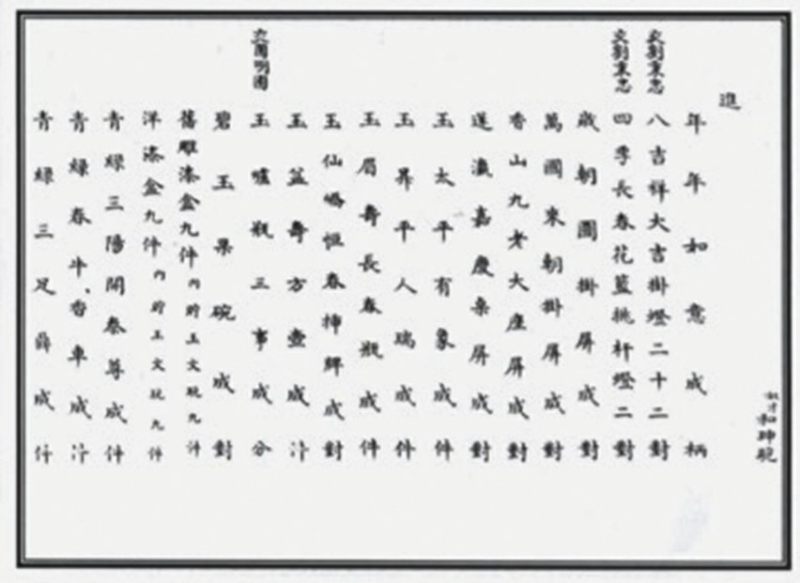 奴才和珅跪
進
年年如意成柄
交劉秉忠 八吉祥大吉掛燈二十二對
交劉秉忠 四季長春花籃挑杆燈二對
歲朝圖掛屏成對
萬國來朝掛屏成對
香山九老大座屏成對
蓬瀛嘉慶桌屏成對
玉太平有象成件
玉昇平人瑞成件
玉眉壽長春瓶成件
玉仙鶴恒春觶成對
玉壽方壺成件
交圓明園 玉爐瓶三事成分
碧玉果碗成對
舊雕漆盒九件內貯玉文玩九件
洋漆盒九件內貯玉文玩九件
青綠三陽開泰尊成件
青綠春牛、香車成件
青綠三足鼎成件